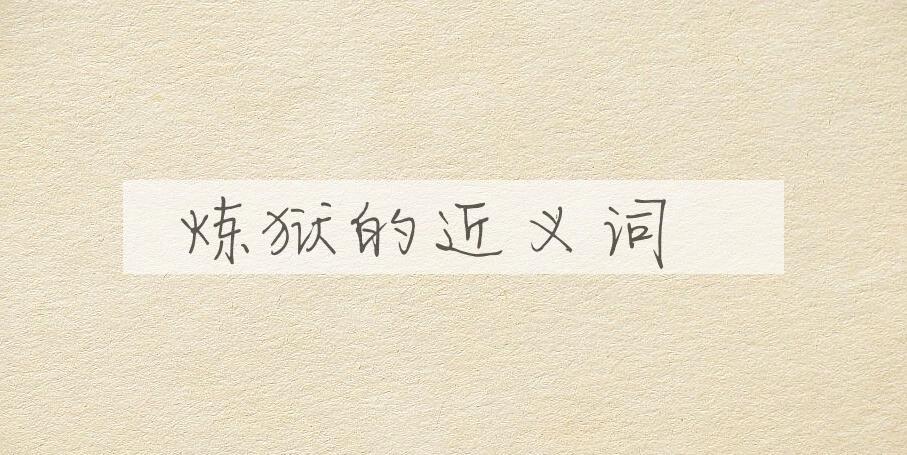 炼狱的近义词